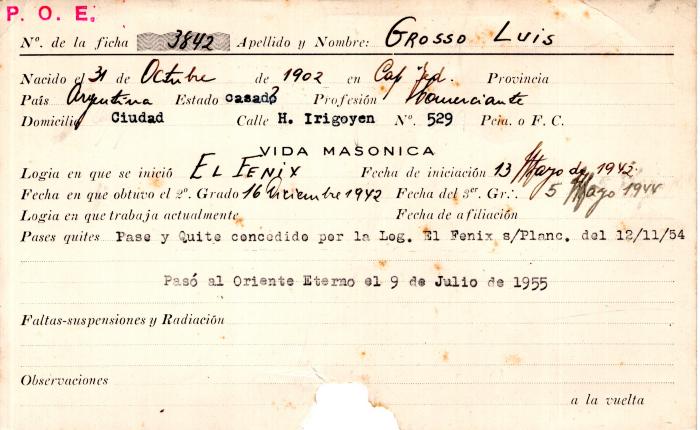 P. O. E.
Nº. de la ficha 3842 Apellido y Nombre: GROSSO LUIS
Nacido el 31 de Octubre de 1902 en Cap. Fed. Provincia
País Argentina Estado casado Profesión Comerciante
Domicilio Ciudad Calle H. Irigoyen Nº. 529 Pcia. o F. C.
VIDA MASONICA
Logia en que se inició EL FENIX Fecha de iniciación 13 Mayo de 1942
Fecha en que obtuvo el 2º. Grado 16 Diciembre 1942 Fecha del 3er. Gr∴. 5 Mayo 1944
Logia en que trabaja actualmente Fecha de afiliación
Pases quites Pase y Quite concedido por la Log. El Fenix s/Planc. del 12/11/54
Pasó al Oriente Eterno el 9 de Julio de 1955
Faltas-suspensiones y Radiación
Observaciones
a la vuelta